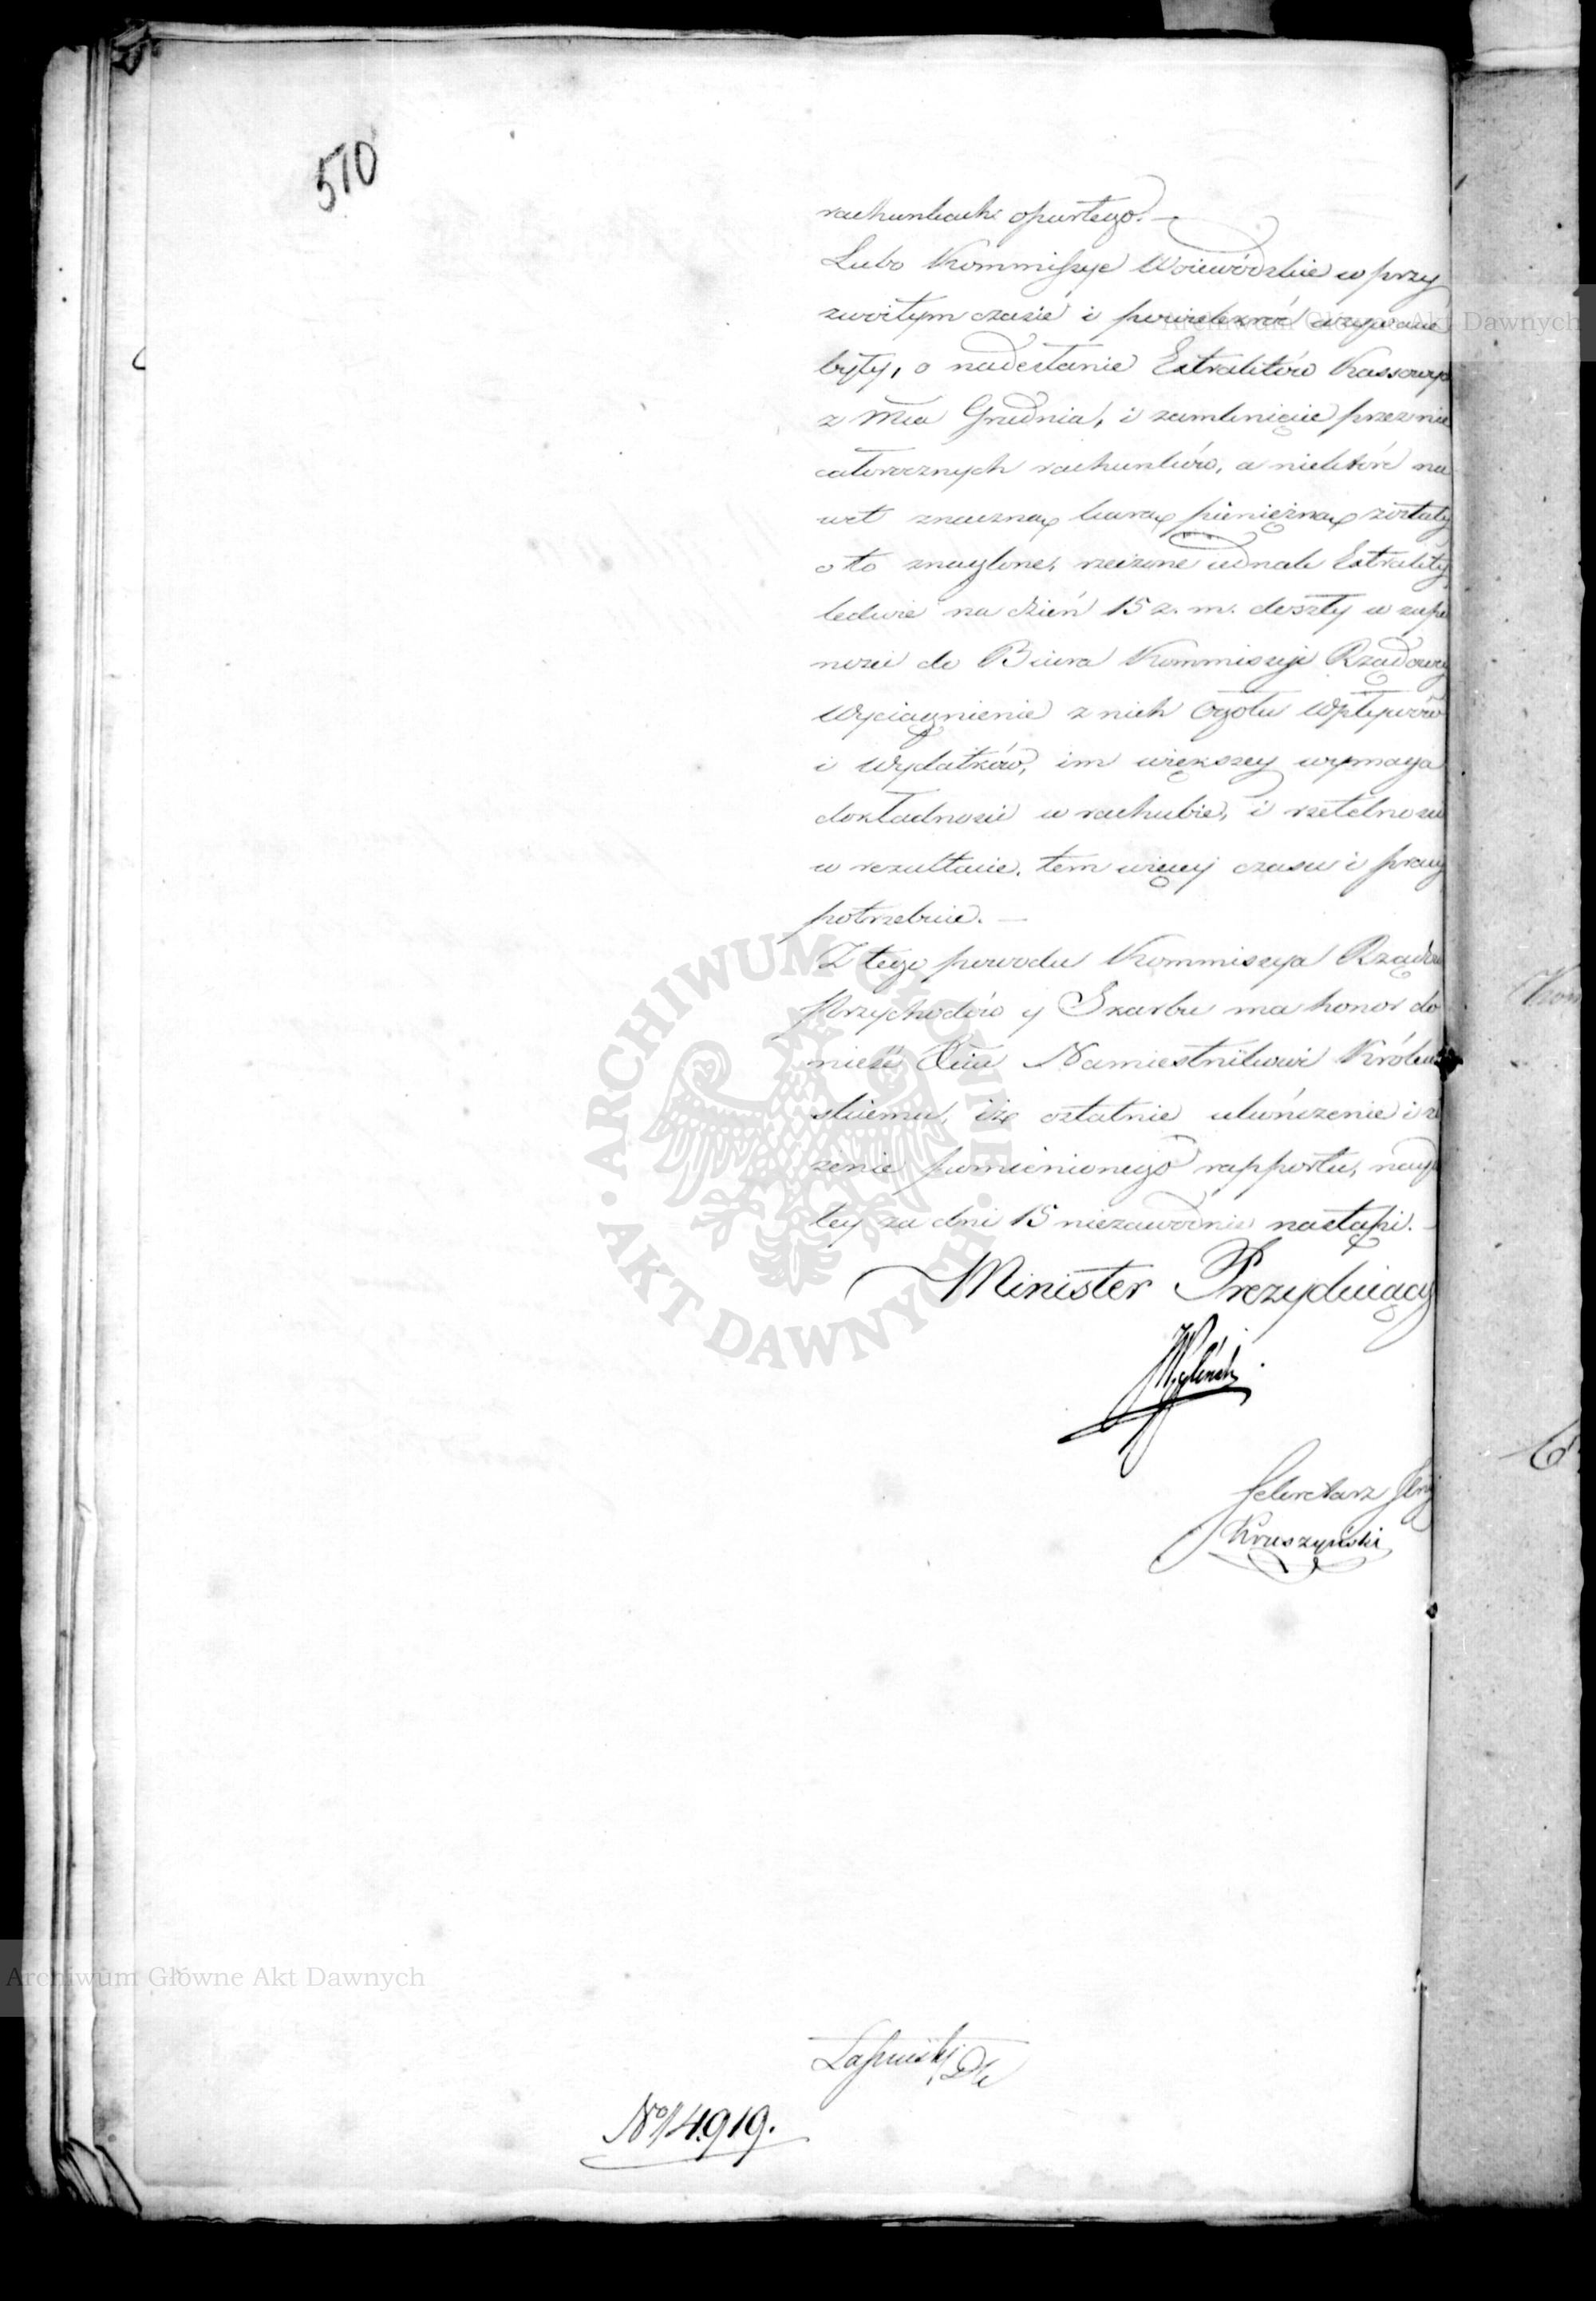 510
rachunkach opartego. —
Lubo Kommissye Woiewódzkie w przy
zwoitym czasie i powielekroć wzywane
były, o nadesłanie Extraktów Kassowyc
z Mca Grudnia, i zamknięcie przez nie
całorocznych rachunków, a niektóre na
wet znaczną karą pieniężną zostały
o to znaglone, rzeczone iednak Extrakty
ledwie na dzień 15 z. m. doszły w zupe
ności do Biura Kommissyi Rządowey
Wyciągnienie z nich Ogółu Wpływów
i Wydatków, im większey wymaga
dokładności w rachubie, i rzetelności
w rezultacie, tem więcey czasu i pracy
potrzebuie. —
Z tego powodu Kommissya Rządow
Przychodów y Skarbu ma honor do
nieść Xciu Namiestnikowi Królew
skiemu, iż ostatnie ukończenie i z
żenie pomienionego rapportu, nayp
ley za dni 15 niezawodnie nastąpi. —
Minister Prezyduiący
Węgleński
Sekretarz Jlny
Kruszyński
Łapiński
No 14919.
Archiwum Główne Akt Dawnych
Archiwum Główne Akt Dawnych
ARCHIWUM GŁÓWNE AKT DAWNYCH